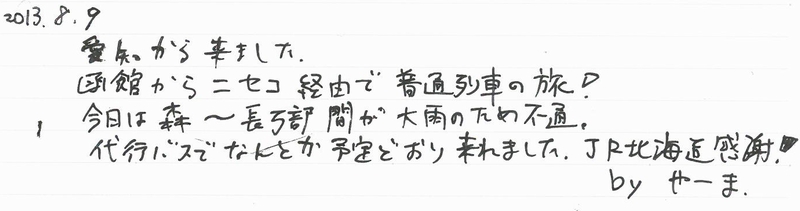 2013.8.9
愛知から来ました.
函館からニセコ経由で普通列車の旅!
今日は森〜長万部間が大雨のため不通。
代行バスでなんとか予定どおり来れました.JR北海道感謝!
by やーま.